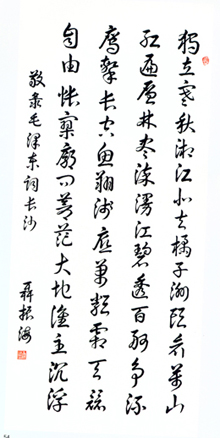 独立寒秋湘江北去橘子洲头看万山
红遍层林尽染漫江碧透百舸争流
鹰击长空鱼翔浅底万类霜天竞
自由怅寥廓问苍茫大地谁主沉浮
敬录毛泽东词长沙